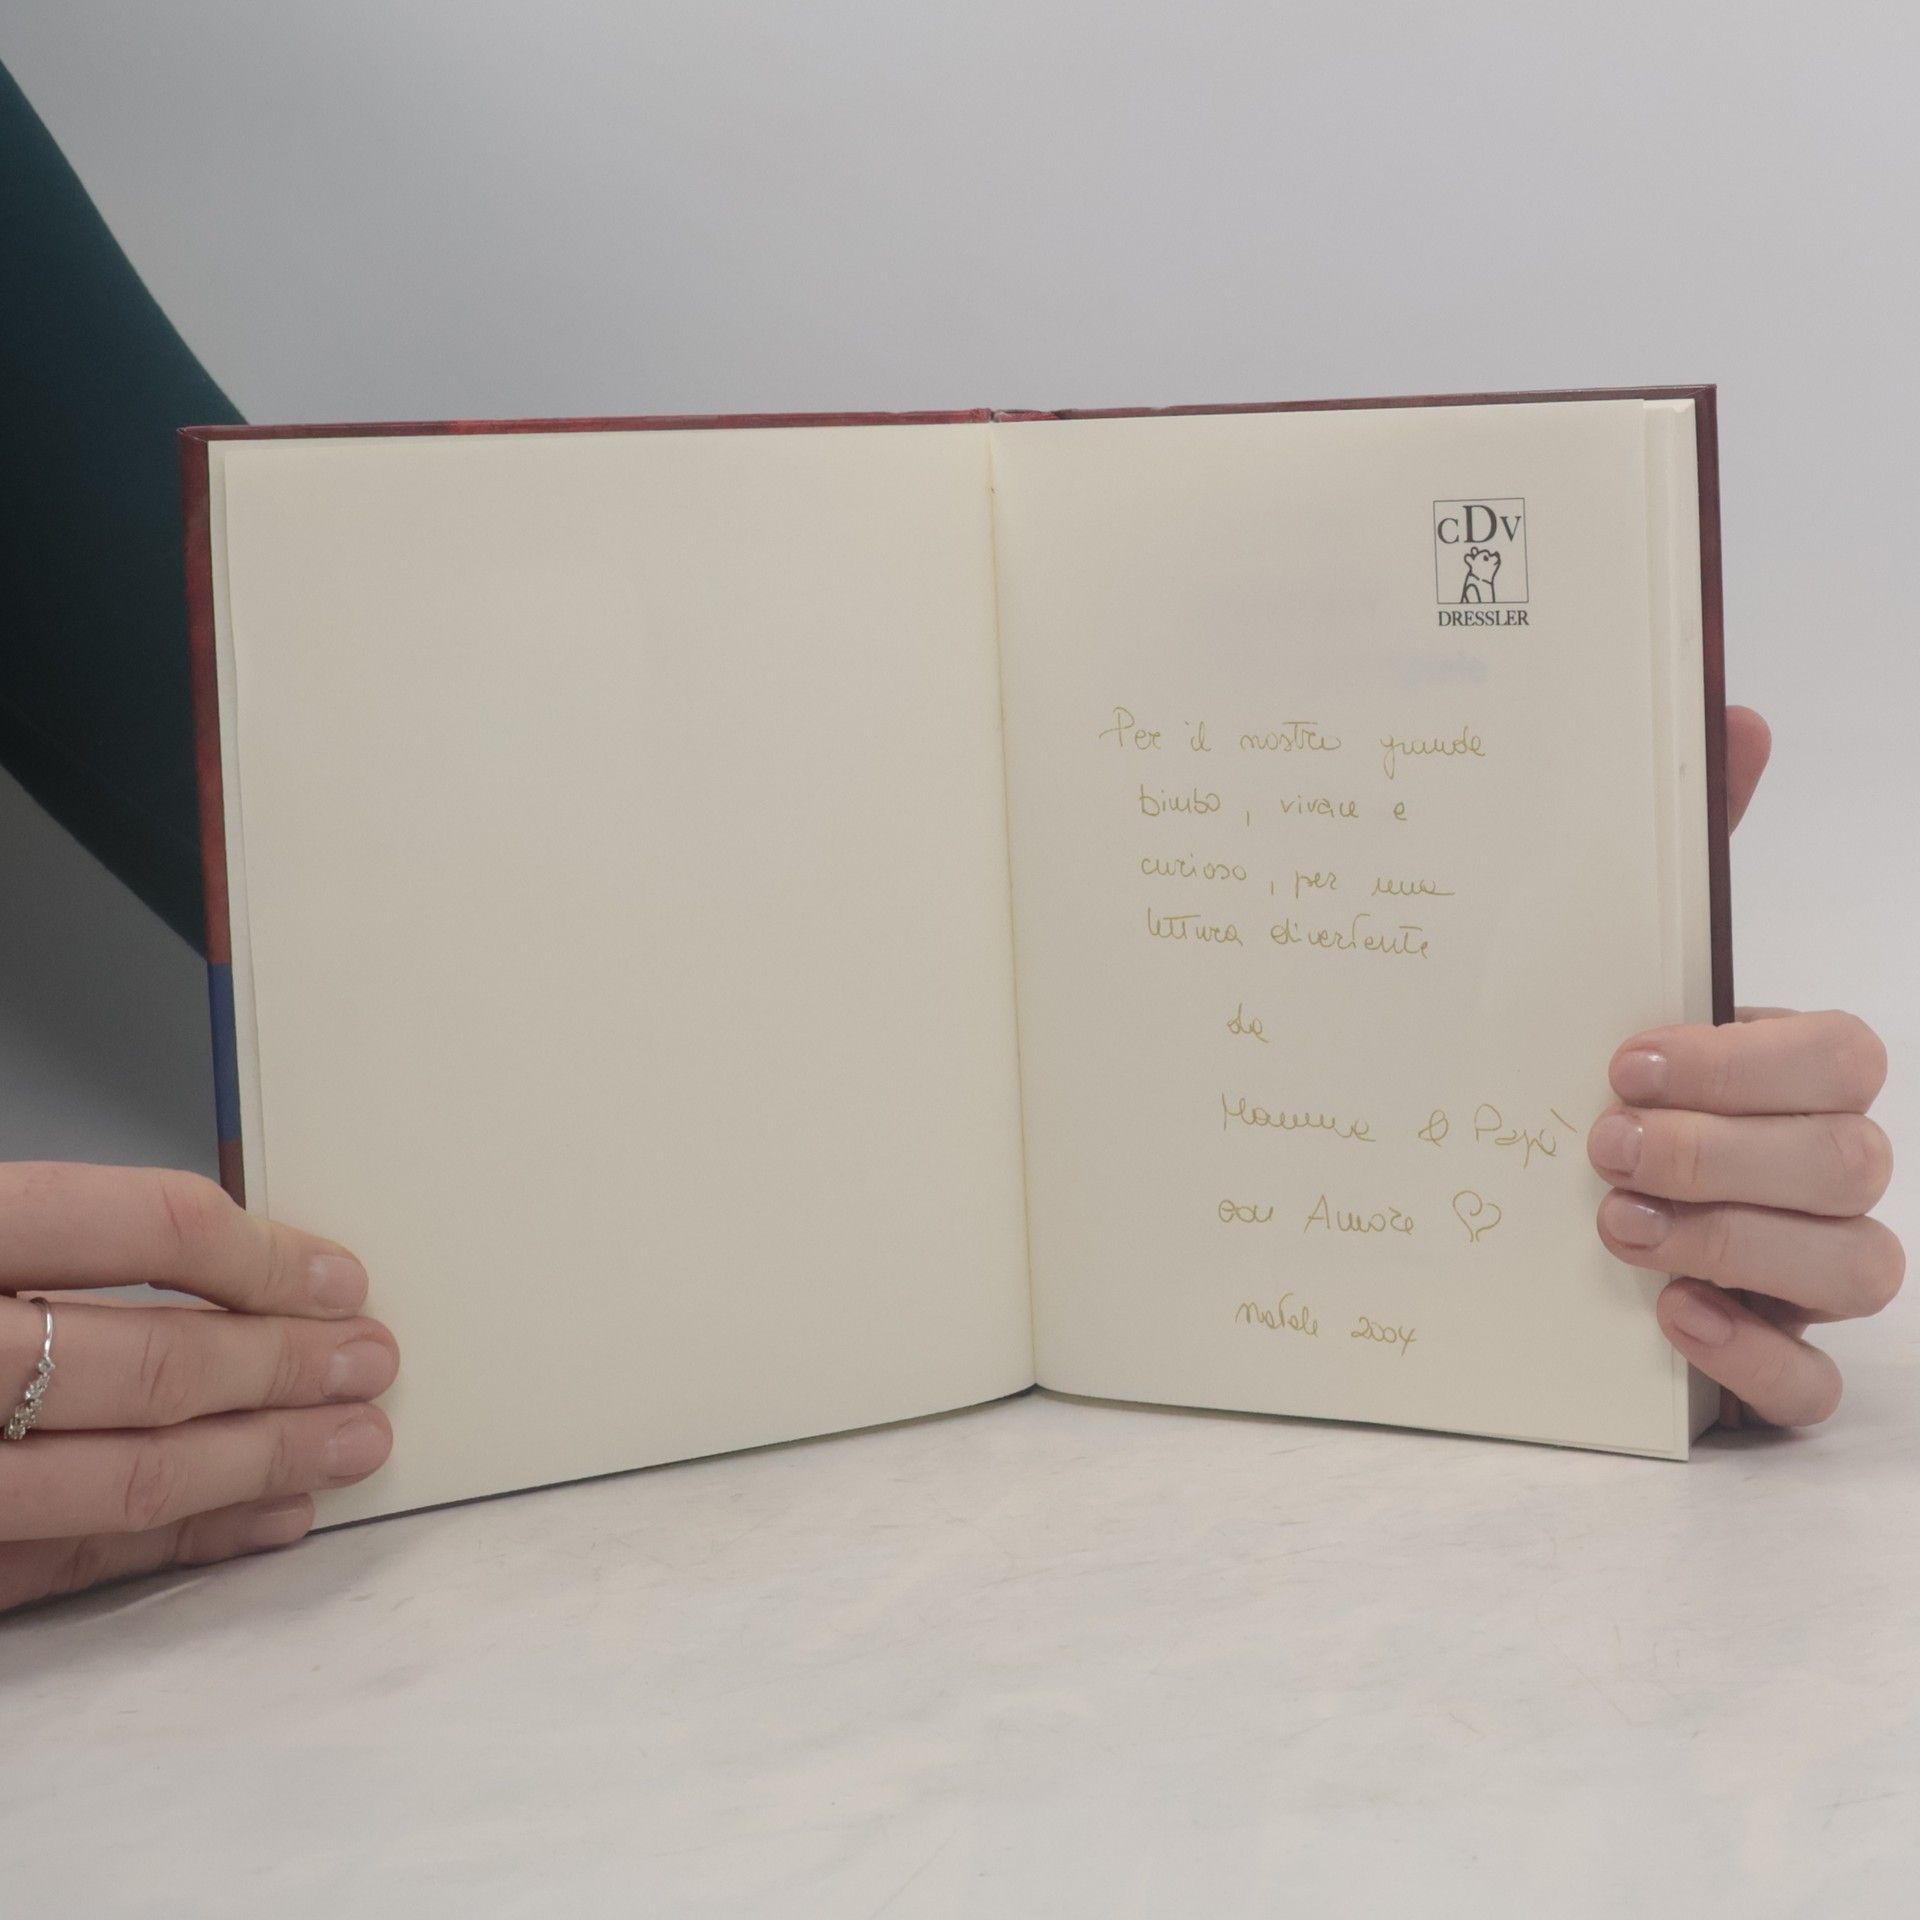 CDV
DRESSLER
Per il nostro grande
bimbo, vivace e
curioso, per una
lettura divertente
da
Mamma & Papà
con Amore ♡
natale 2004